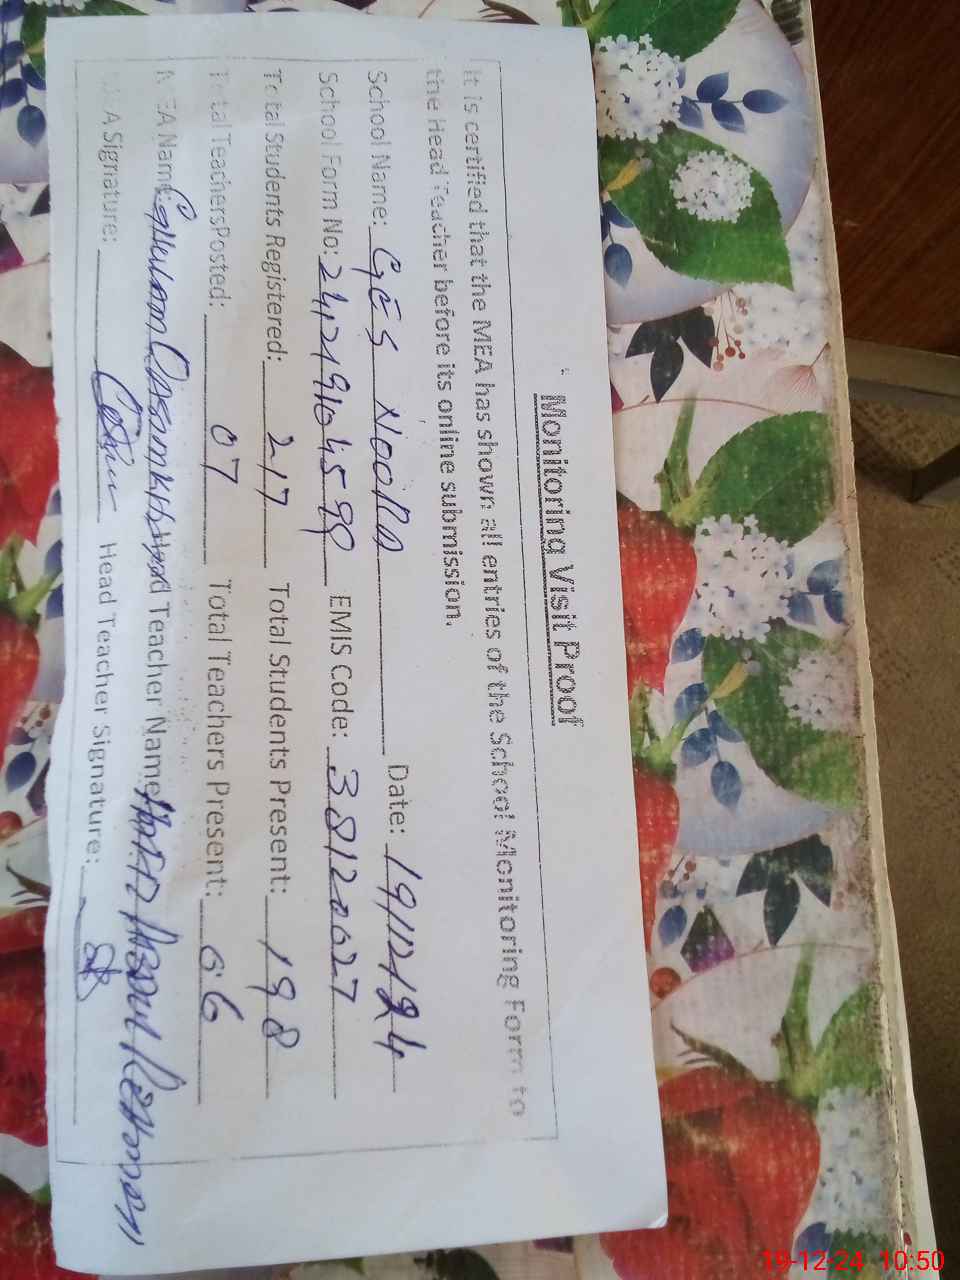 Monitoring Visit Proof
It is certified that the MEA has shown all entries of the School Monitoring Form to
the Head Teacher before its online submission.
School Name: GES Noora Date: 19/12/24
School Form No: EMIS Code: 38120027
Total Students Registered: 217 Total Students Present: 198
Total Teachers Posted: 07 Total Teachers Present: 06
MEA Name: Head Teacher Name: Rehman
MEA Signature: Head Teacher Signature:
19-12-24 10:50